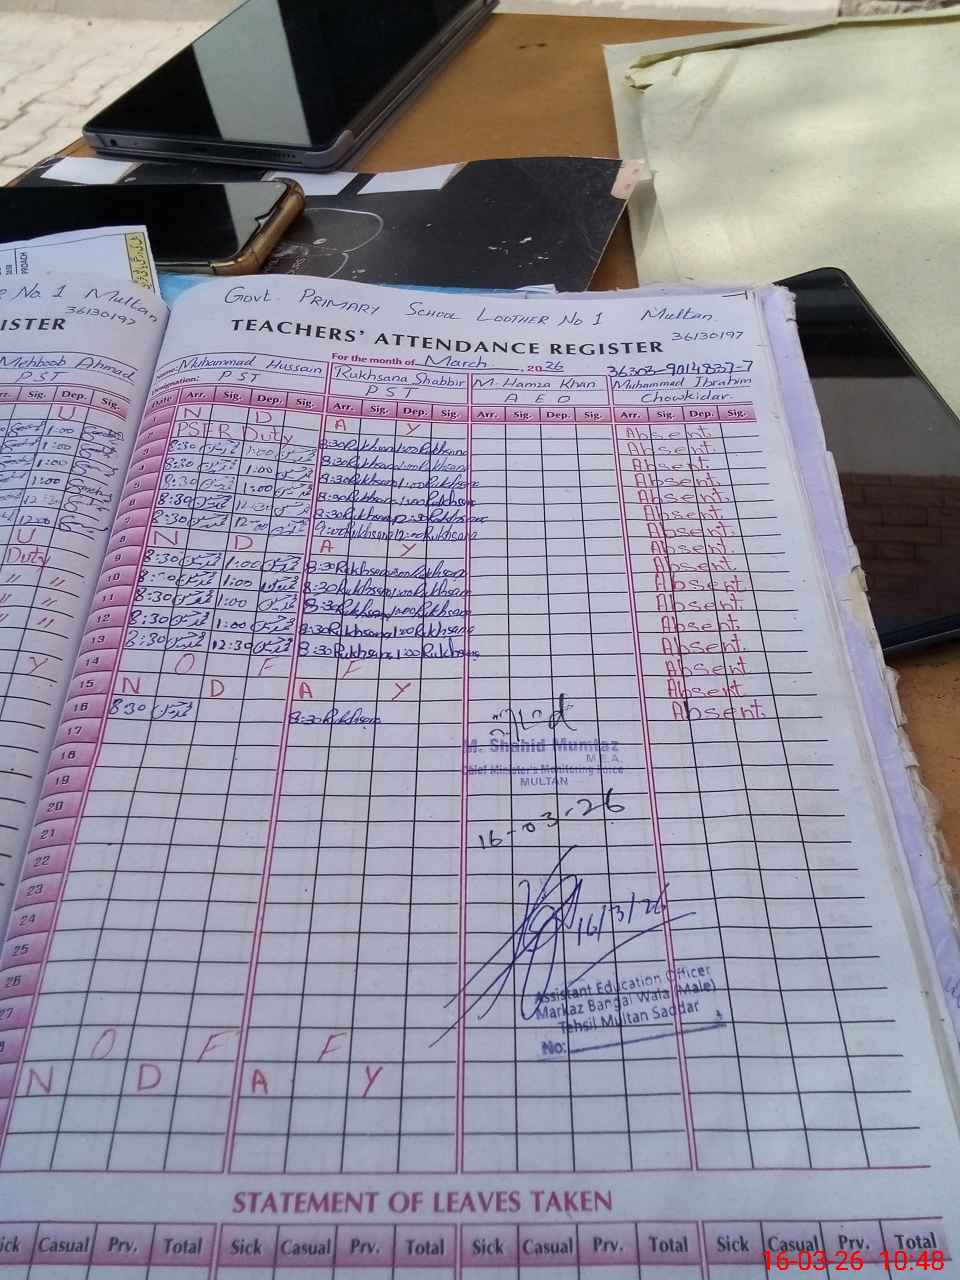 PROACH
e No. 1 Multan
36130197
ISTER
Mehboob Ahmad
PST
Sig. Dep. Sig.
U
1:00
1:00
1:00
1:00
12:00
U
Duty
" "
" "
" "
Y
Govt. PRIMARY SCHOOL LOOTHER No 1 Multan
36130197
TEACHERS' ATTENDANCE REGISTER
For the month of March 2026
Name: Muhammad Hussain Rukhsana Shabbir M. Hamza Khan 36303-9014837-7
Muhammad Ibrahim
Designation: PST PST A E O Chowkidar.
Date Arr. Sig. Dep. Sig. Arr. Sig. Dep. Sig. Arr. Sig. Dep. Sig. Arr. Sig. Dep. Sig.
1 N D A Y Absent
2 PSER Duty 8:30 Rukhsana 1:00 Rukhsana Absent
3 8:30 1:00 8:30 Rukhsana 1:00 Rukhsana Absent
4 8:30 1:00 8:30 Rukhsana 1:00 Rukhsana Absent
5 8:30 1:00 8:30 Rukhsana 1:00 Rukhsana Absent
6 8:30 12:30 8:30 Rukhsana 12:30 Rukhsana Absent
7 8:30 12:00 9:00 Rukhsana 12:00 Rukhsana Absent
8 N D A Y Absent
9 8:30 1:00 8:30 Rukhsana Rukhsana Absent
10 8:30 1:00 8:30 Rukhsana 1:00 Rukhsana Absent
11 8:30 1:00 8:30 Rukhsana 1:00 Rukhsana Absent
12 8:30 1:00 8:30 Rukhsana 1:00 Rukhsana Absent
13 8:30 12:30 8:30 Rukhsana 1:00 Rukhsana Absent
14 O F F Absent
15 N D A Y Absent
16 8:30 8:30 Rukhsana Absent
17
M. Shahid Mumtaz
M.E.A.
18
Chief Minister's Monitoring Force
MULTAN
19
20
16-03-26
21
22
23
24
16/3/26
25
26
Assistant Education Officer
Markaz Bangal Wala (Male)
27
Tehsil Multan Saddar
No:
O F F
N D A Y
STATEMENT OF LEAVES TAKEN
Sick Casual Prv. Total Sick Casual Prv. Total Sick Casual Prv. Total Sick Casual Prv. Total
16-03-26 10:48